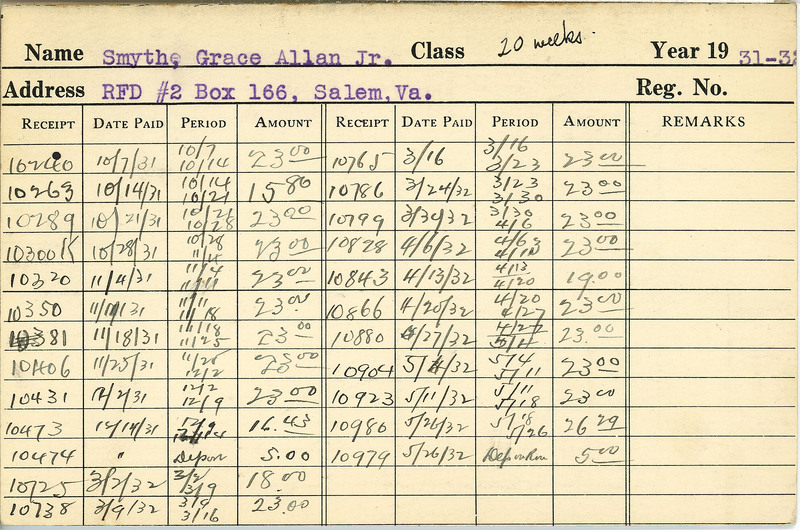 Name Smythe Grace Allan Jr. Class 20 weeks. Year 19 31-32
Address RFD #2 Box 166, Salem, Va. Reg. No.
RECEIPT DATE PAID PERIOD AMOUNT RECEIPT DATE PAID PERIOD AMOUNT REMARKS
10240 10/7/31 10/7 10/14 23.00 10765 3/16 3/16 3/23 23.00
10263 10/14/31 10/14 10/21 15.80 10786 3/24/32 3/23 3/30 23.00
10289 10/21/31 10/21 10/28 23.00 10799 3/30/32 3/30 4/6 23.00
10300K 10/28/31 10/28 11/4 23.00 10828 4/6/32 4/6 23.00
10320 11/4/31 11/4 11/11 23.00 10843 4/13/32 4/13 4/20 19.00
10350 11/11/31 11/11 11/18 23.00 10866 4/20/32 4/20 4/27 23.00
10381 11/18/31 11/18 11/25 23.00 10880 4/27/32 4/27 5/4 23.00
10406 11/25/31 11/25 12/2 23.00 10904 5/4/32 5/4 5/11 23.00
10431 12/2/31 12/2 12/9 23.00 10923 5/11/32 5/11 5/18 23.00
10473 12/14/31 12/9 12/14 16.43 10980 5/26/32 5/18 5/26 26.29
10474 " 5.00 10979 5/26/32 5.00
10725 3/2/32 3/2 3/9 18.00
10738 3/9/32 3/9 3/16 23.00